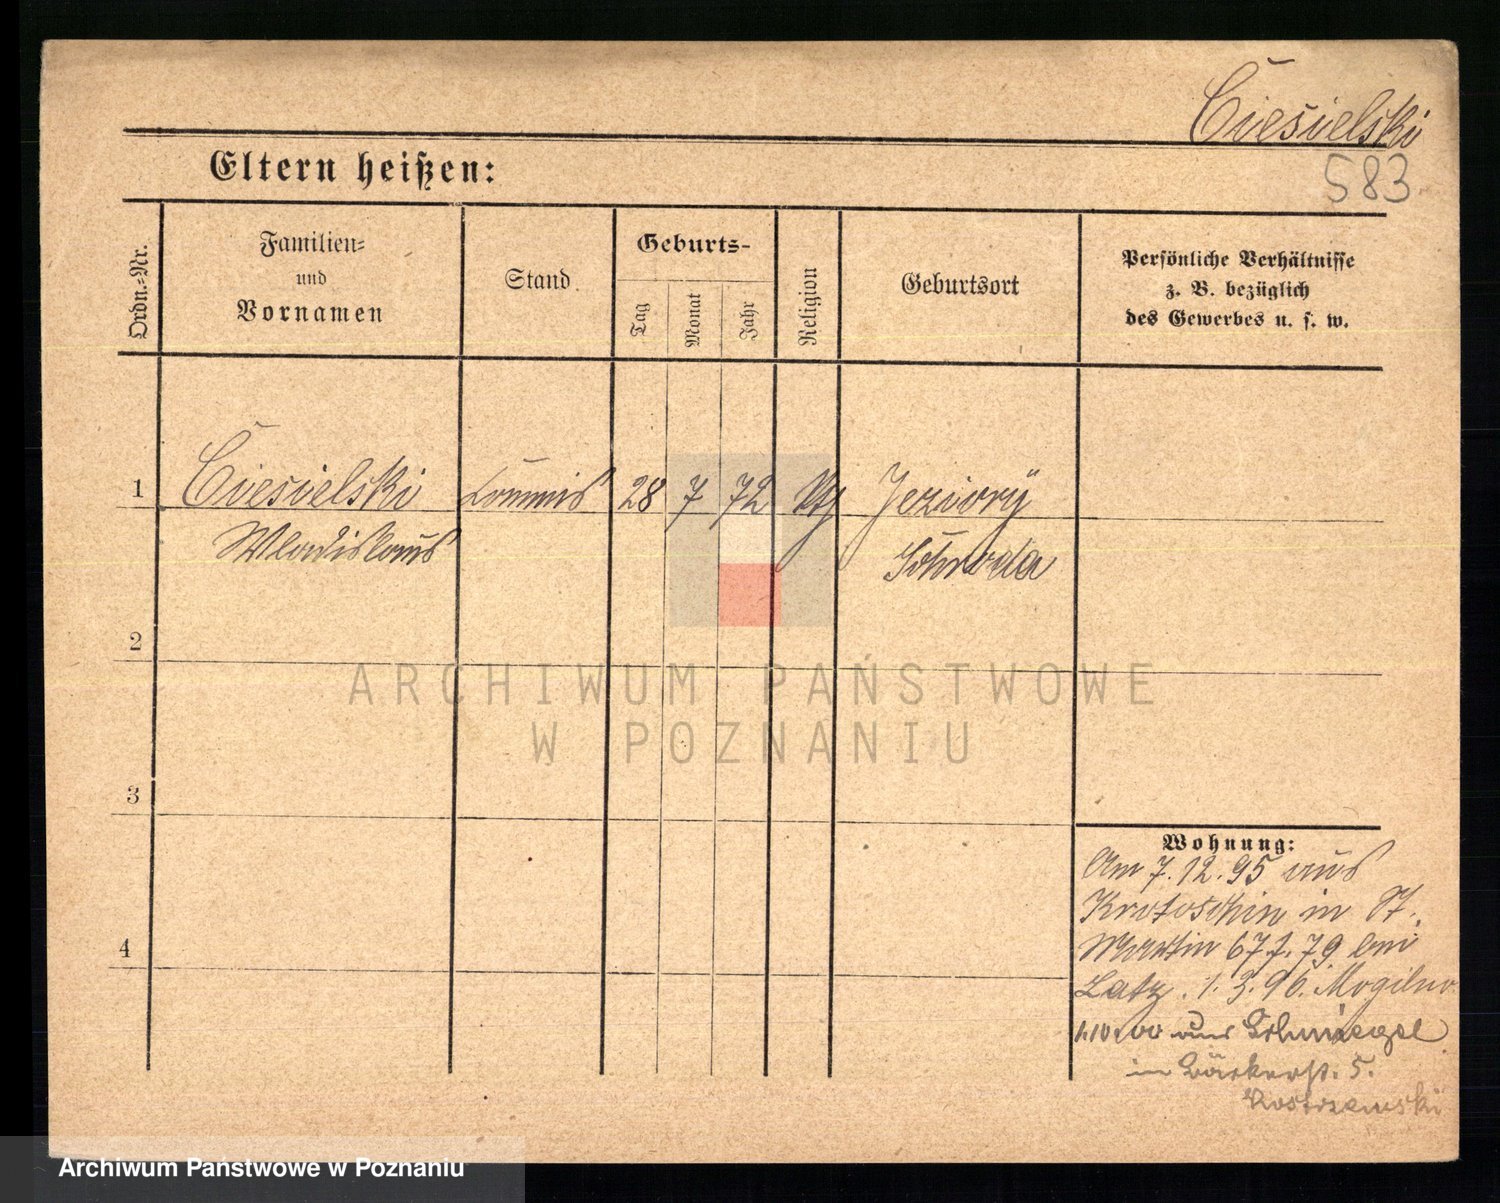 Ciesielski
583
Eltern heißen:
Ordn.-Nr.
Familien-
und
Vornamen
Stand
Geburts-
Tag
Monat
Jahr
Religion
Geburtsort
Persönliche Verhältnisse
z. B. bezüglich
des Gewerbes u. s. w.
1
Ciesielski Commis 28 7 72 kth Jeziory
Wladislaus Schroda
2
3
4
ARCHIWUM PAŃSTWOWE
W POZNANIU
Wohnung:
Am 7.12.95 aus
Krotoschin in St.
Martin 67 f. 79 bei
Latz. 1.3.96. Mogilno
1.10.00 aus Schmiegel
in Bäckerst. 5.
Kostrzewski
Archiwum Państwowe w Poznaniu